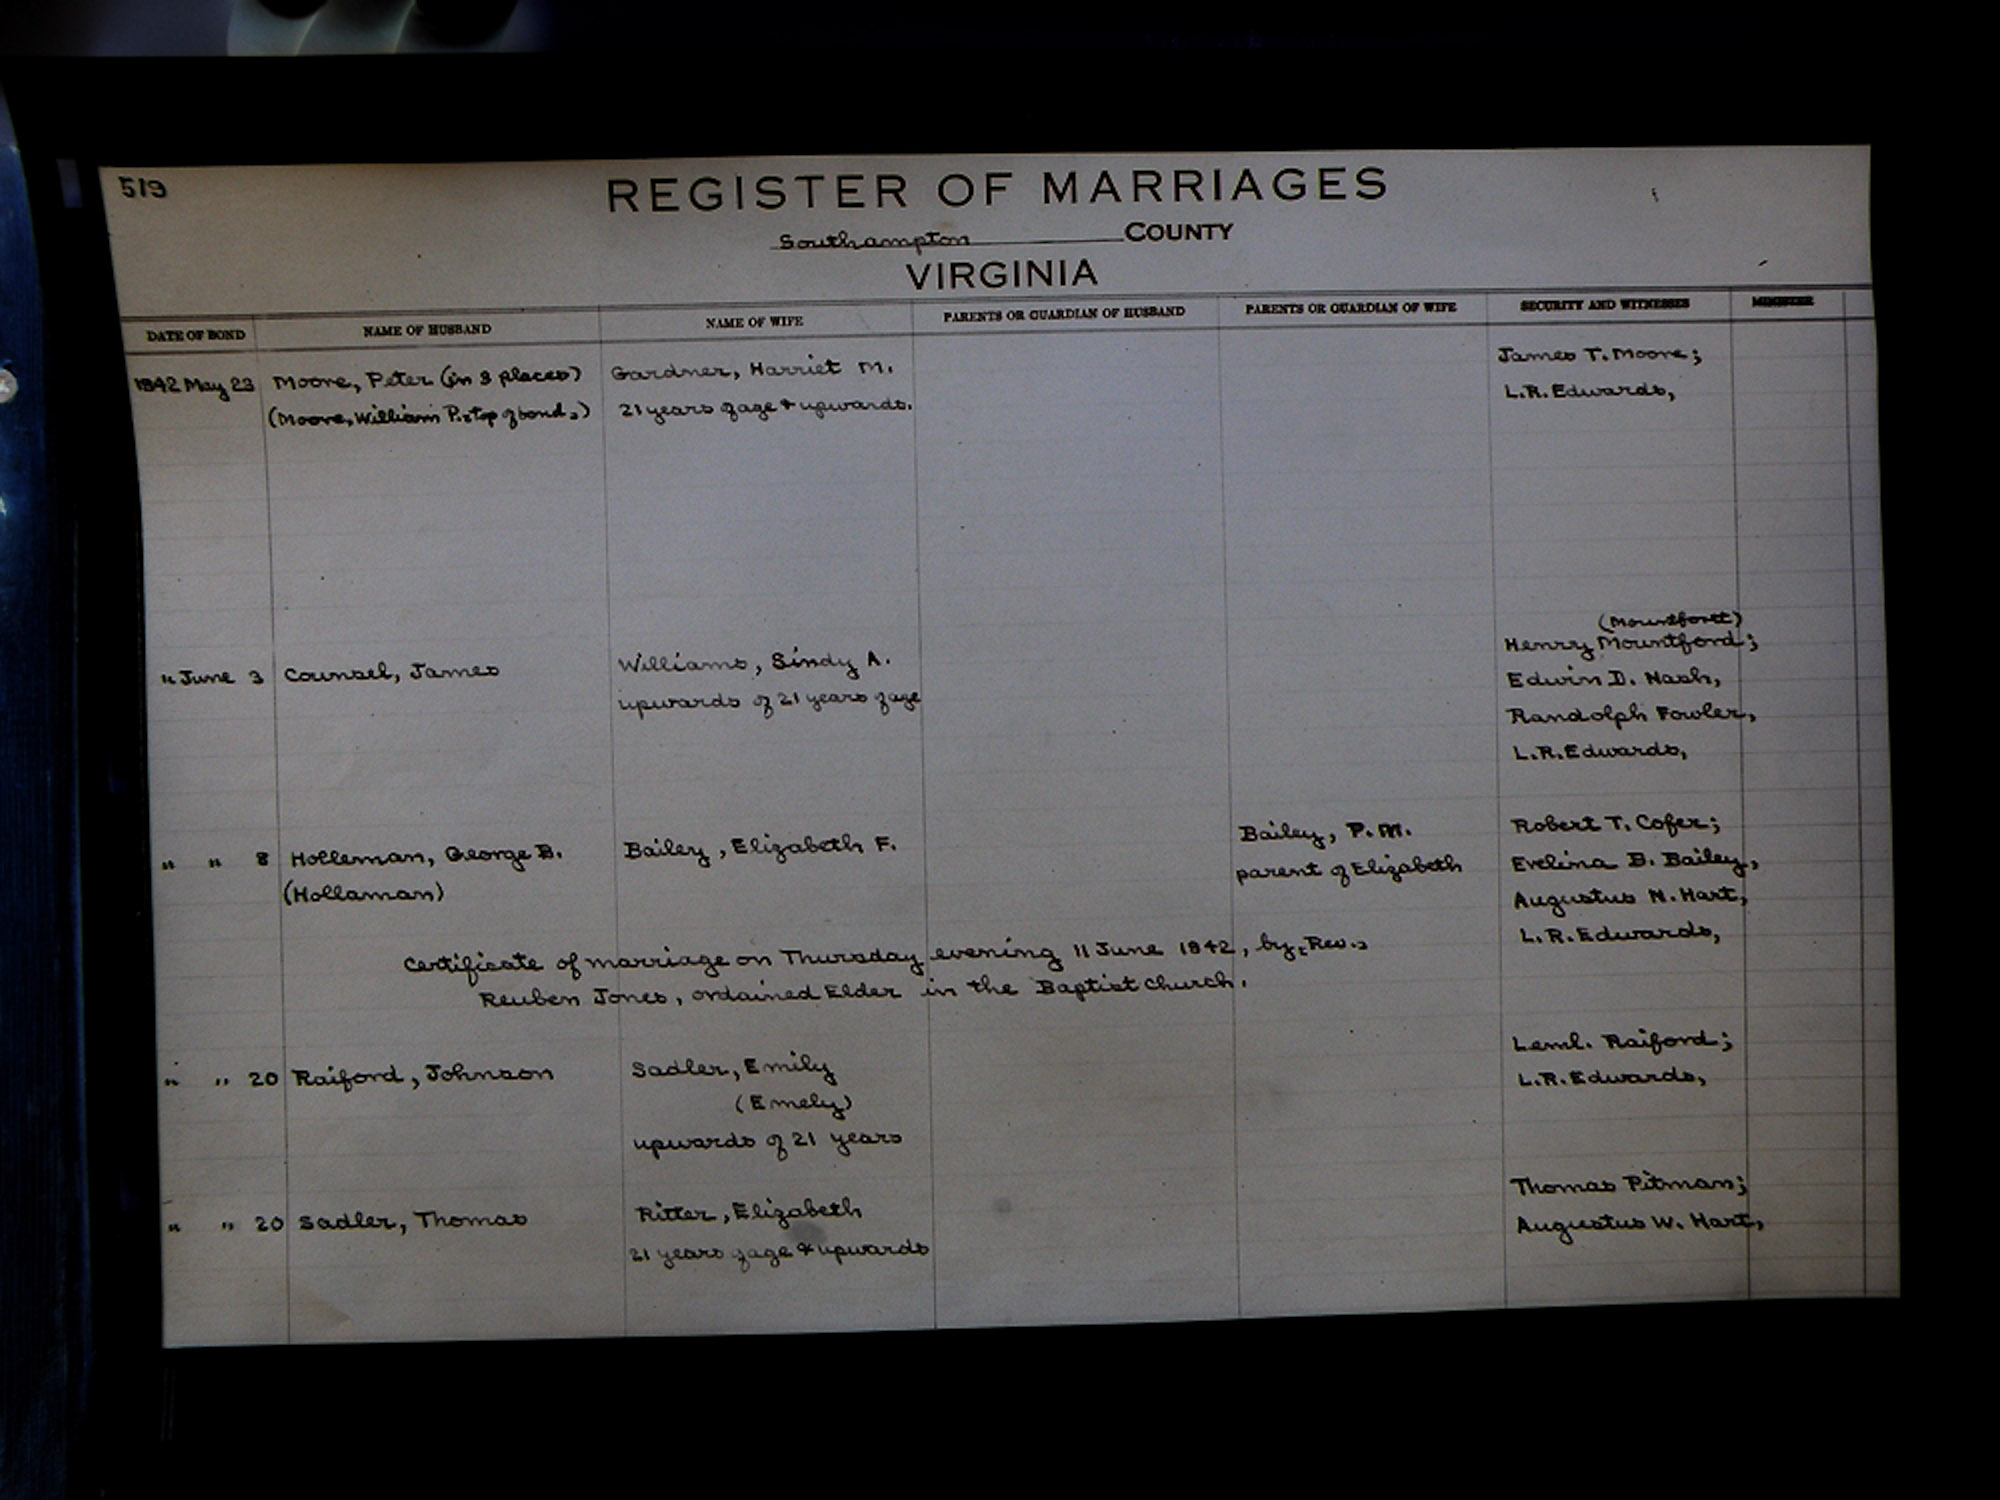 519
REGISTER OF MARRIAGES
Southampton COUNTY
VIRGINIA
DATE OF BOND NAME OF HUSBAND NAME OF WIFE PARENTS OR GUARDIAN OF HUSBAND PARENTS OR GUARDIAN OF WIFE SECURITY AND WITNESSES MINISTER
1842 May 23 Moore, Peter (in 3 places) Gardner, Harriet M. James T. Moore;
(Moore, William P. top of bond.) 21 years of age & upwards. L.R. Edwards,
(Mountfortt)
" June 3 Counsel, James Williams, Sindy A. Henry Mountford;
upwards of 21 years of age Edwin D. Nash,
Randolph Fowler,
L.R. Edwards,
" " 8 Holleman, George B. Bailey, Elizabeth F. Bailey, P. M. Robert T. Cofer;
(Hollaman) parent of Elizabeth Evelina B. Bailey,
Augustus N. Hart,
L.R. Edwards,
Certificate of marriage on Thursday evening 11 June 1842, by, Rev.
Reuben Jones, ordained Elder in the Baptist Church.
" " 20 Raiford, Johnson Sadler, Emily Leml. Raiford;
(Emely) L.R. Edwards,
upwards of 21 years
" " 20 Sadler, Thomas Ritter, Elizabeth Thomas Pitman;
21 years of age & upwards Augustus W. Hart,